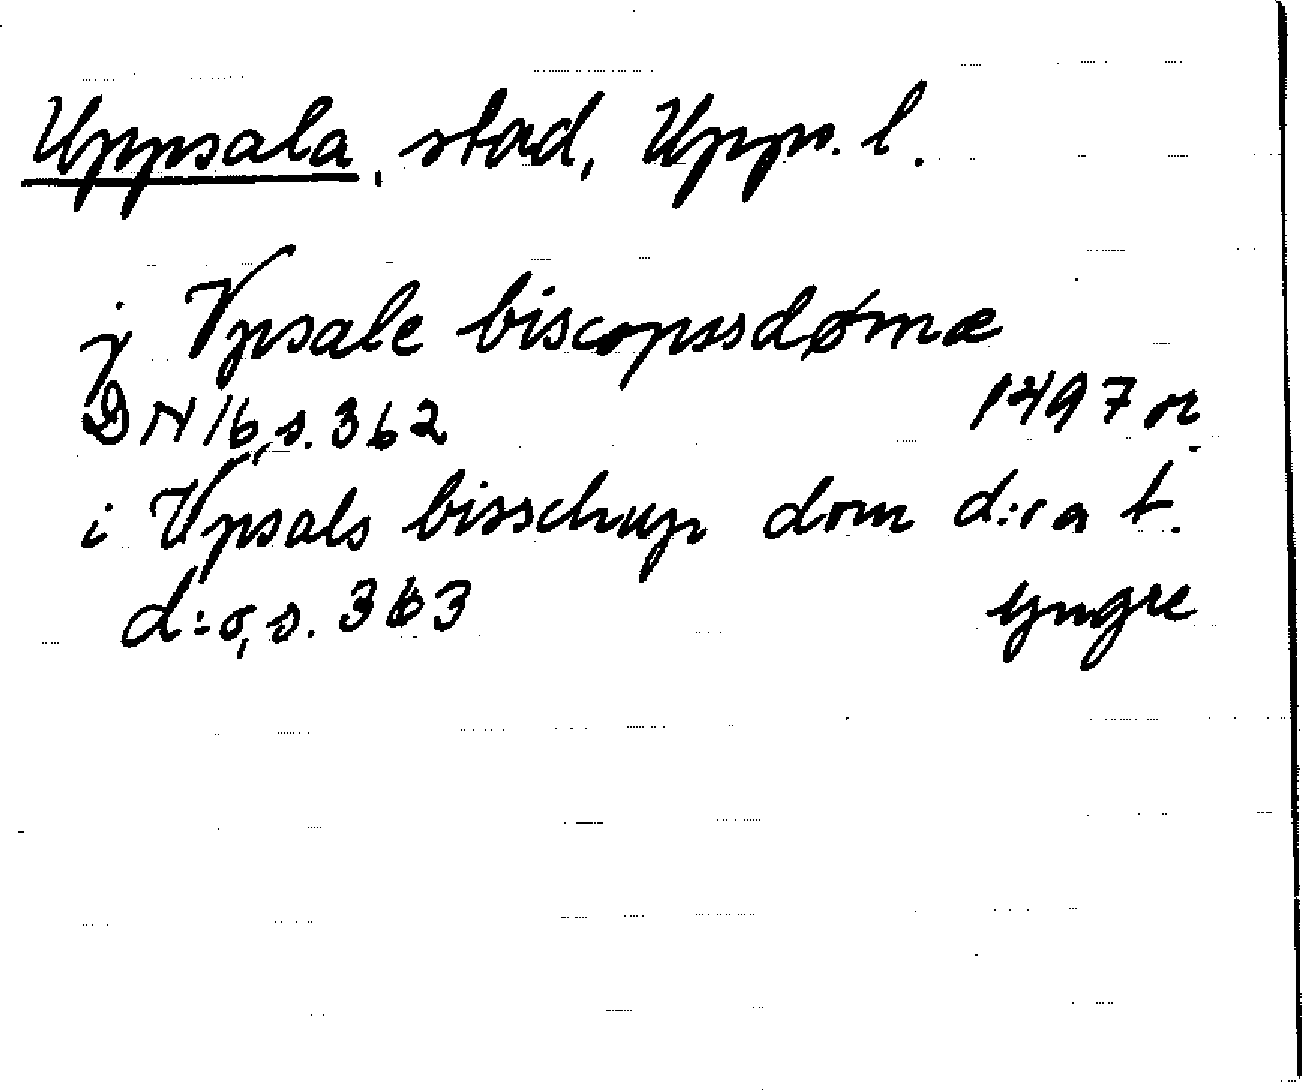 Uppsala, stad, Upps. l.
j Vpsale biscopssdømæ
DN 16, s. 362 1497 or.
i Vpsals bisschup dom d:o a t.
d:o, s. 363 yngre